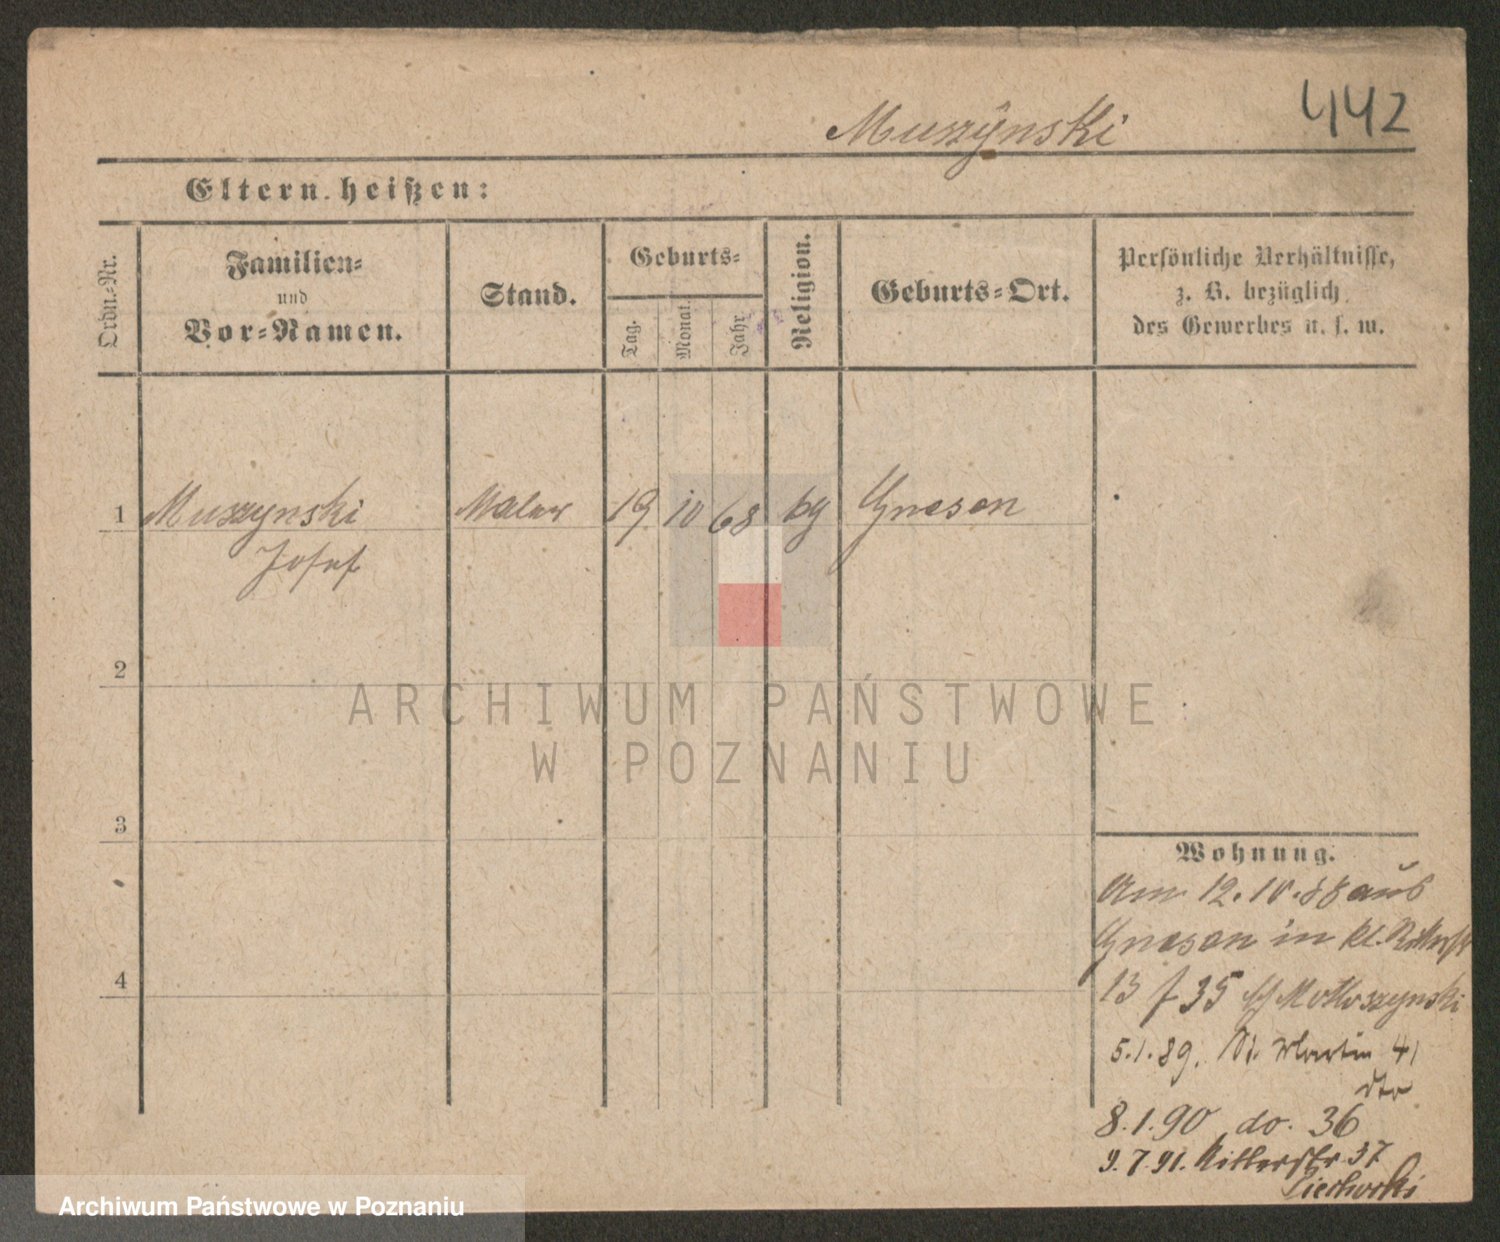 442
Muszÿnski
Eltern heißen:
Ordn.-Nr.
Familien-
und
Vor-Namen.
Stand.
Geburts-
Tag.
Monat.
Jahr
Religion.
Geburts-Ort.
Persönliche Verhältnisse,
z. B. bezüglich
des Gewerbes u. s. w.
1 Muszynski Maler 19 10 68 Gnesen
Josef
2
ARCHIWUM PAŃSTWOWE
W POZNANIU
3
Wohnung.
Am 12.10.88 aus
Gnesen in kl. Ritterstr
4
13 35 Motloszynski
5.1.89. St. Martin 41
8.1.90 do. 36
9.7.91. Ritterstr 37
Archiwum Państwowe w Poznaniu